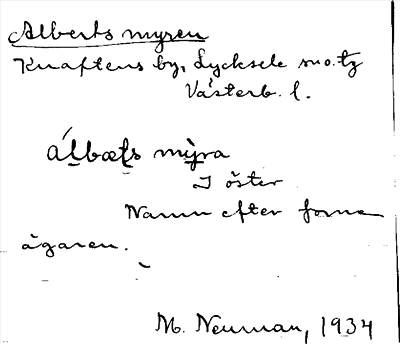 Alberts myren
Knaftens by, Lycksele sn o. tg
Västerb. l.
álbæṭs mỳra
I öster
Namn efter forne
ägaren.
M. Neuman, 1934